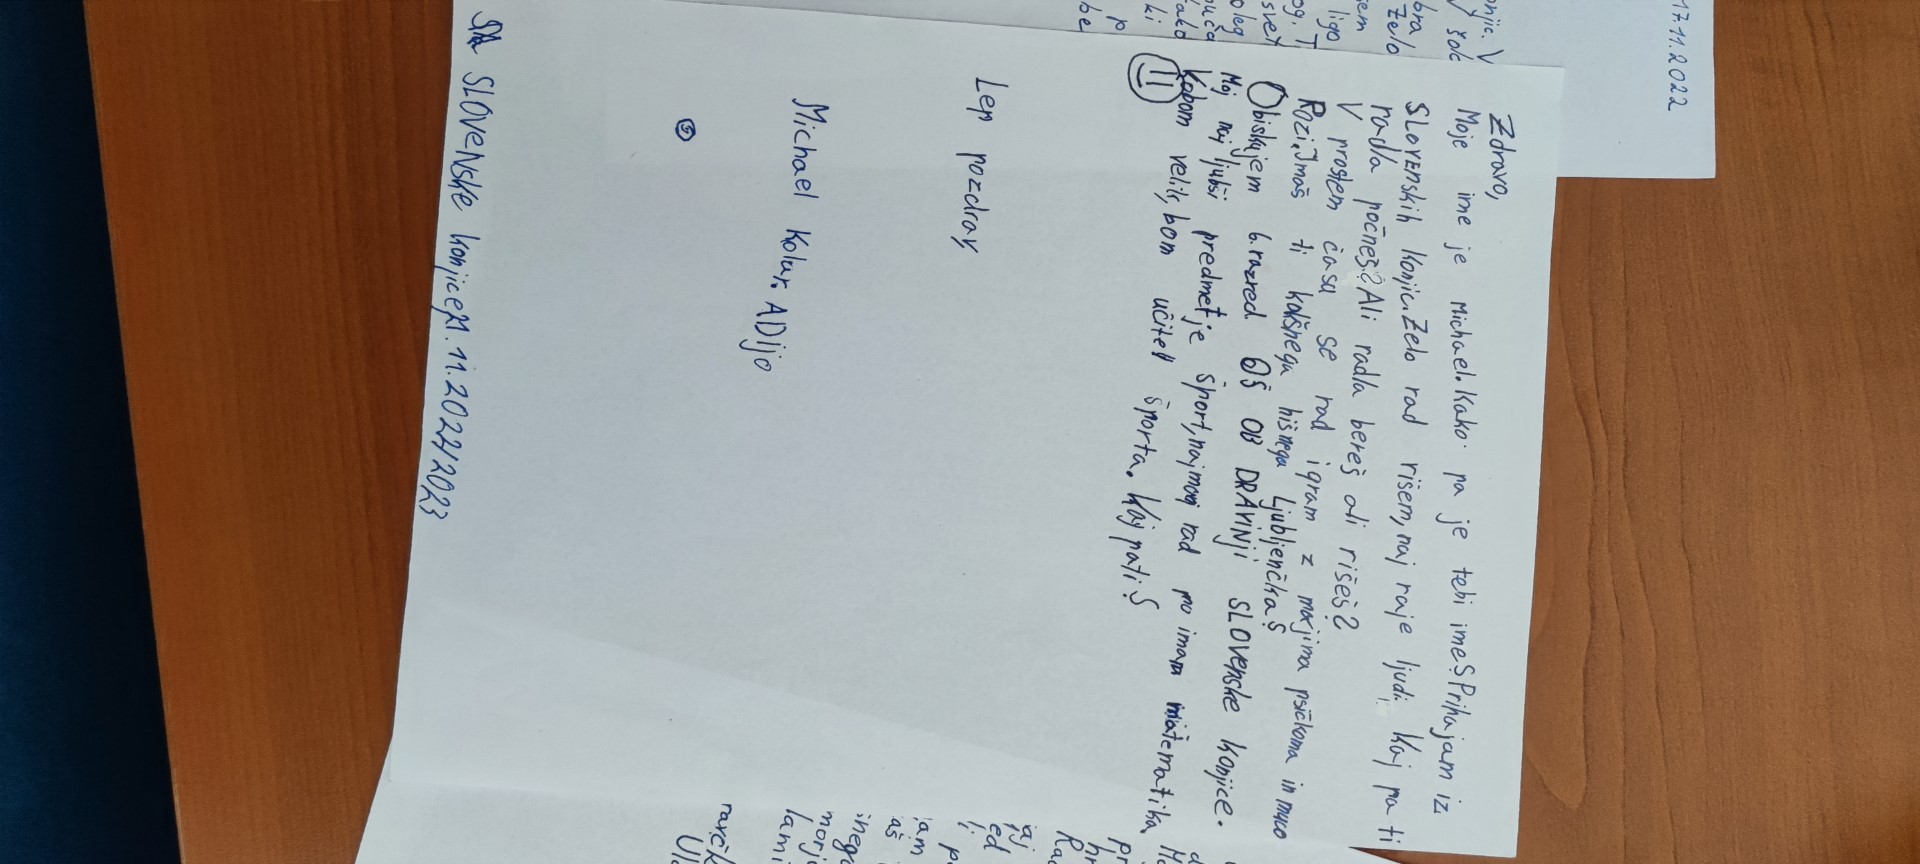 Zdravo,
Moje ime je Michael. Kako pa je tebi ime? Prihajam iz
SLOVENSKih konjic. Zelo rad rišem, naj raje ljudi. Kaj pa ti
rada počneš? Ali rada bereš ali rišeš?
V prostem času se rad igram z mojima psičkoma in muco
Rozi. Imaš ti kakšnega hišnega ljubljenčka?
Obiskujem 6. razred OŠ OB DRAVINJI SLOVENSKE KONJICE.
Moj naj ljubši predmet je šport, najmanj rad pa imam matematika
Ko bom velik, bom učitelj športa. Kaj pa ti?
Lep pozdrav,
Michael Kolar. ADijo
SLOVENSKE konjice, 21. 11. 2022/2023
17.11.2022
onjic. V
šole
bra
Želo
jem
ligo
og. T
svet
oleg
ki
p
be
jam
aš
inega
morj